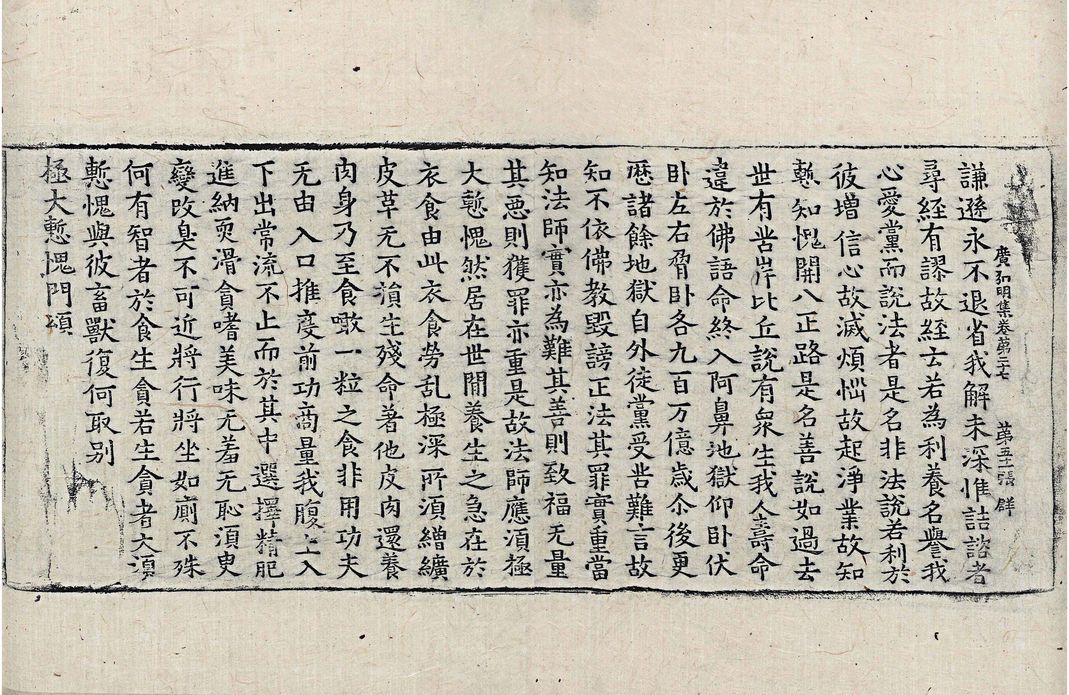 廣弘明集卷第二十七 第五十一張 群
謙遜永不退省我解未深惟詰談者
尋經有謬故經云若為利養名譽我
心愛黨而說法者是名非法說若利於
彼增信心故滅煩惱故起淨業故知
慙知愧開八正路是名善說如過去
世有苦岸比丘說有衆生我人壽命
違於佛語命終入阿鼻地獄仰卧伏
卧左右脅卧各九百万億歲尒後更
歷諸餘地獄自外徒黨受苦難言故
知不依佛教毀謗正法其罪實重當
知法師實亦為難其善則致福无量
其惡則獲罪亦重是故法師應湏極
大慙愧然居在世閒養生之急在於
衣食由此衣食勞乱極深所湏繒纊
皮革无不損生殘命著他皮肉還養
肉身乃至食噉一粒之食非用功夫
无由入口推度前功商量我腹上入
下出常流不止而於其中選擇精肥
進納耎滑貪嗜美味无羞无恥湏臾
變改臭不可近將行將坐如廁不殊
何有智者於食生貪若生貪者大湏
慙愧與彼畜獸復何取別
極大慙愧門頌